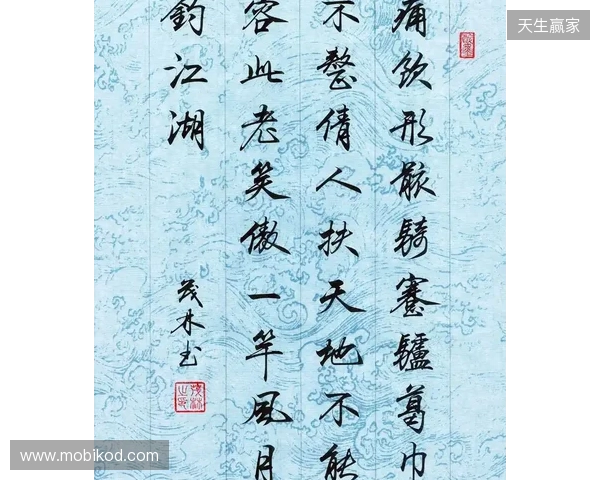 天生赢家
痛饮形骸騎蹇驢葛巾
不整倩人扶天地不能
容此老笑傲一竿風月
釣江湖
茂林书
www.mobikod.com